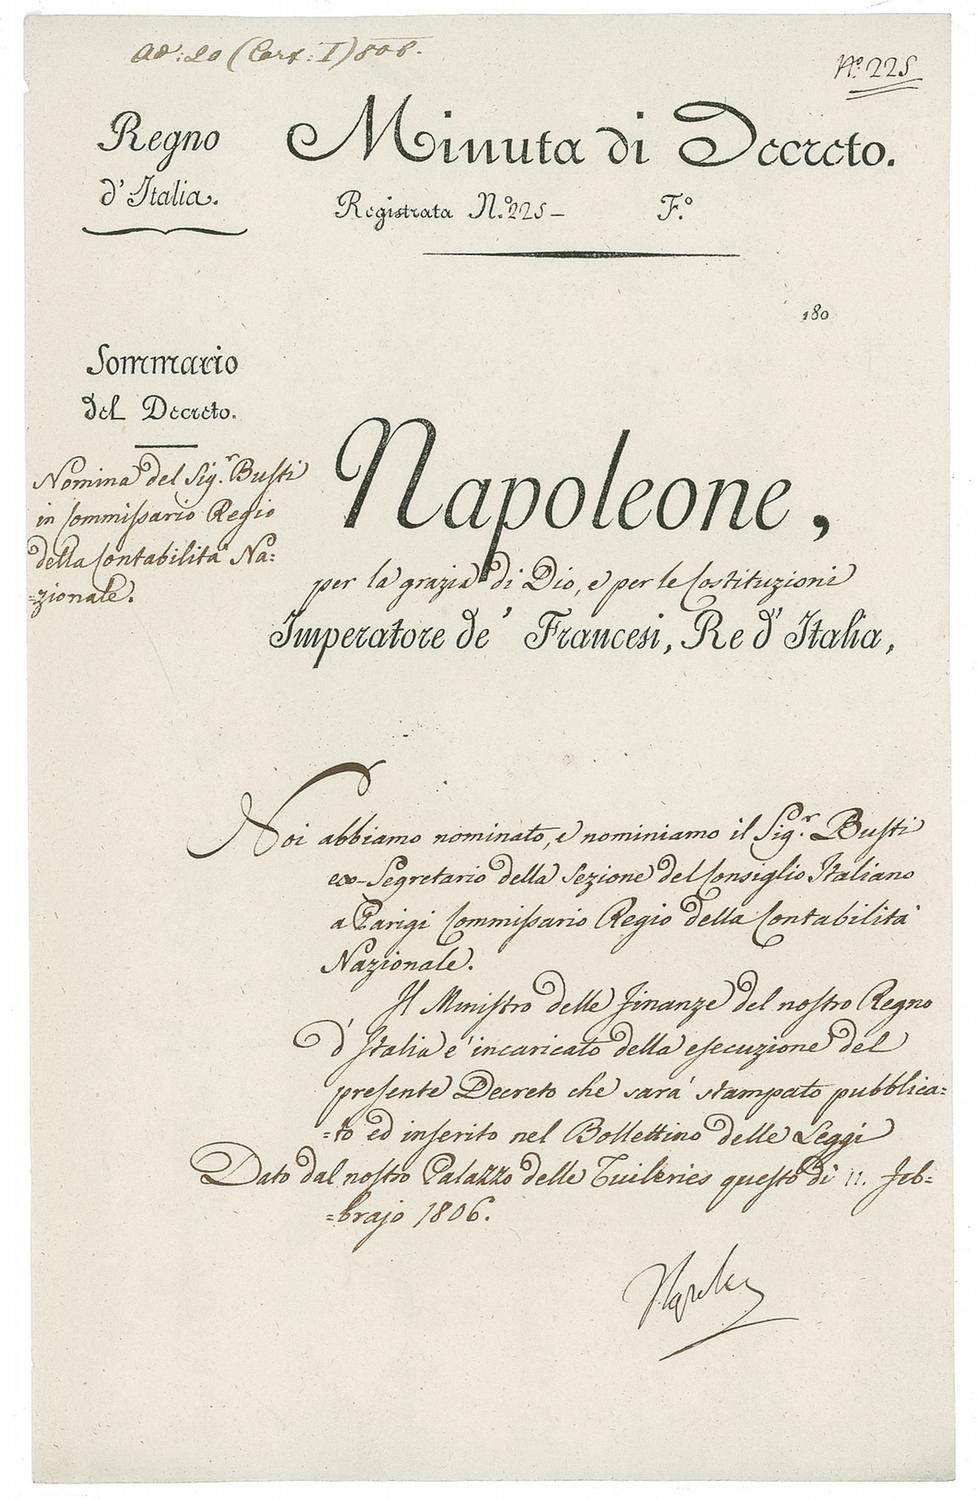 ad: 20 (Cart: I) 806.
N.º 225
Regno
d'Italia.
Minuta di Decreto.
Registrata N.º 225 – F.º
180
Sommario
del Decreto.
Nomina del Sig.r Busti
in Commissario Regio
della Contabilità Na:
=zionale.
Napoleone,
per la grazia di Dio, e per le Costituzioni
Imperatore de' Francesi, Re d'Italia,
Noi abbiamo nominato, e nominiamo il Sig.r Busti
ex-Segretario della Sezione del Consiglio Italiano
a Parigi Commissario Regio della Contabilità
Nazionale.
Il Ministro delle Finanze del nostro Regno
d'Italia è incaricato della esecuzione del
presente Decreto che sarà stampato pubblica=
=to ed inserito nel Bollettino delle Leggi
Dato dal nostro Palazzo delle Tuileries questo dì 11. Feb=
=brajo 1806.